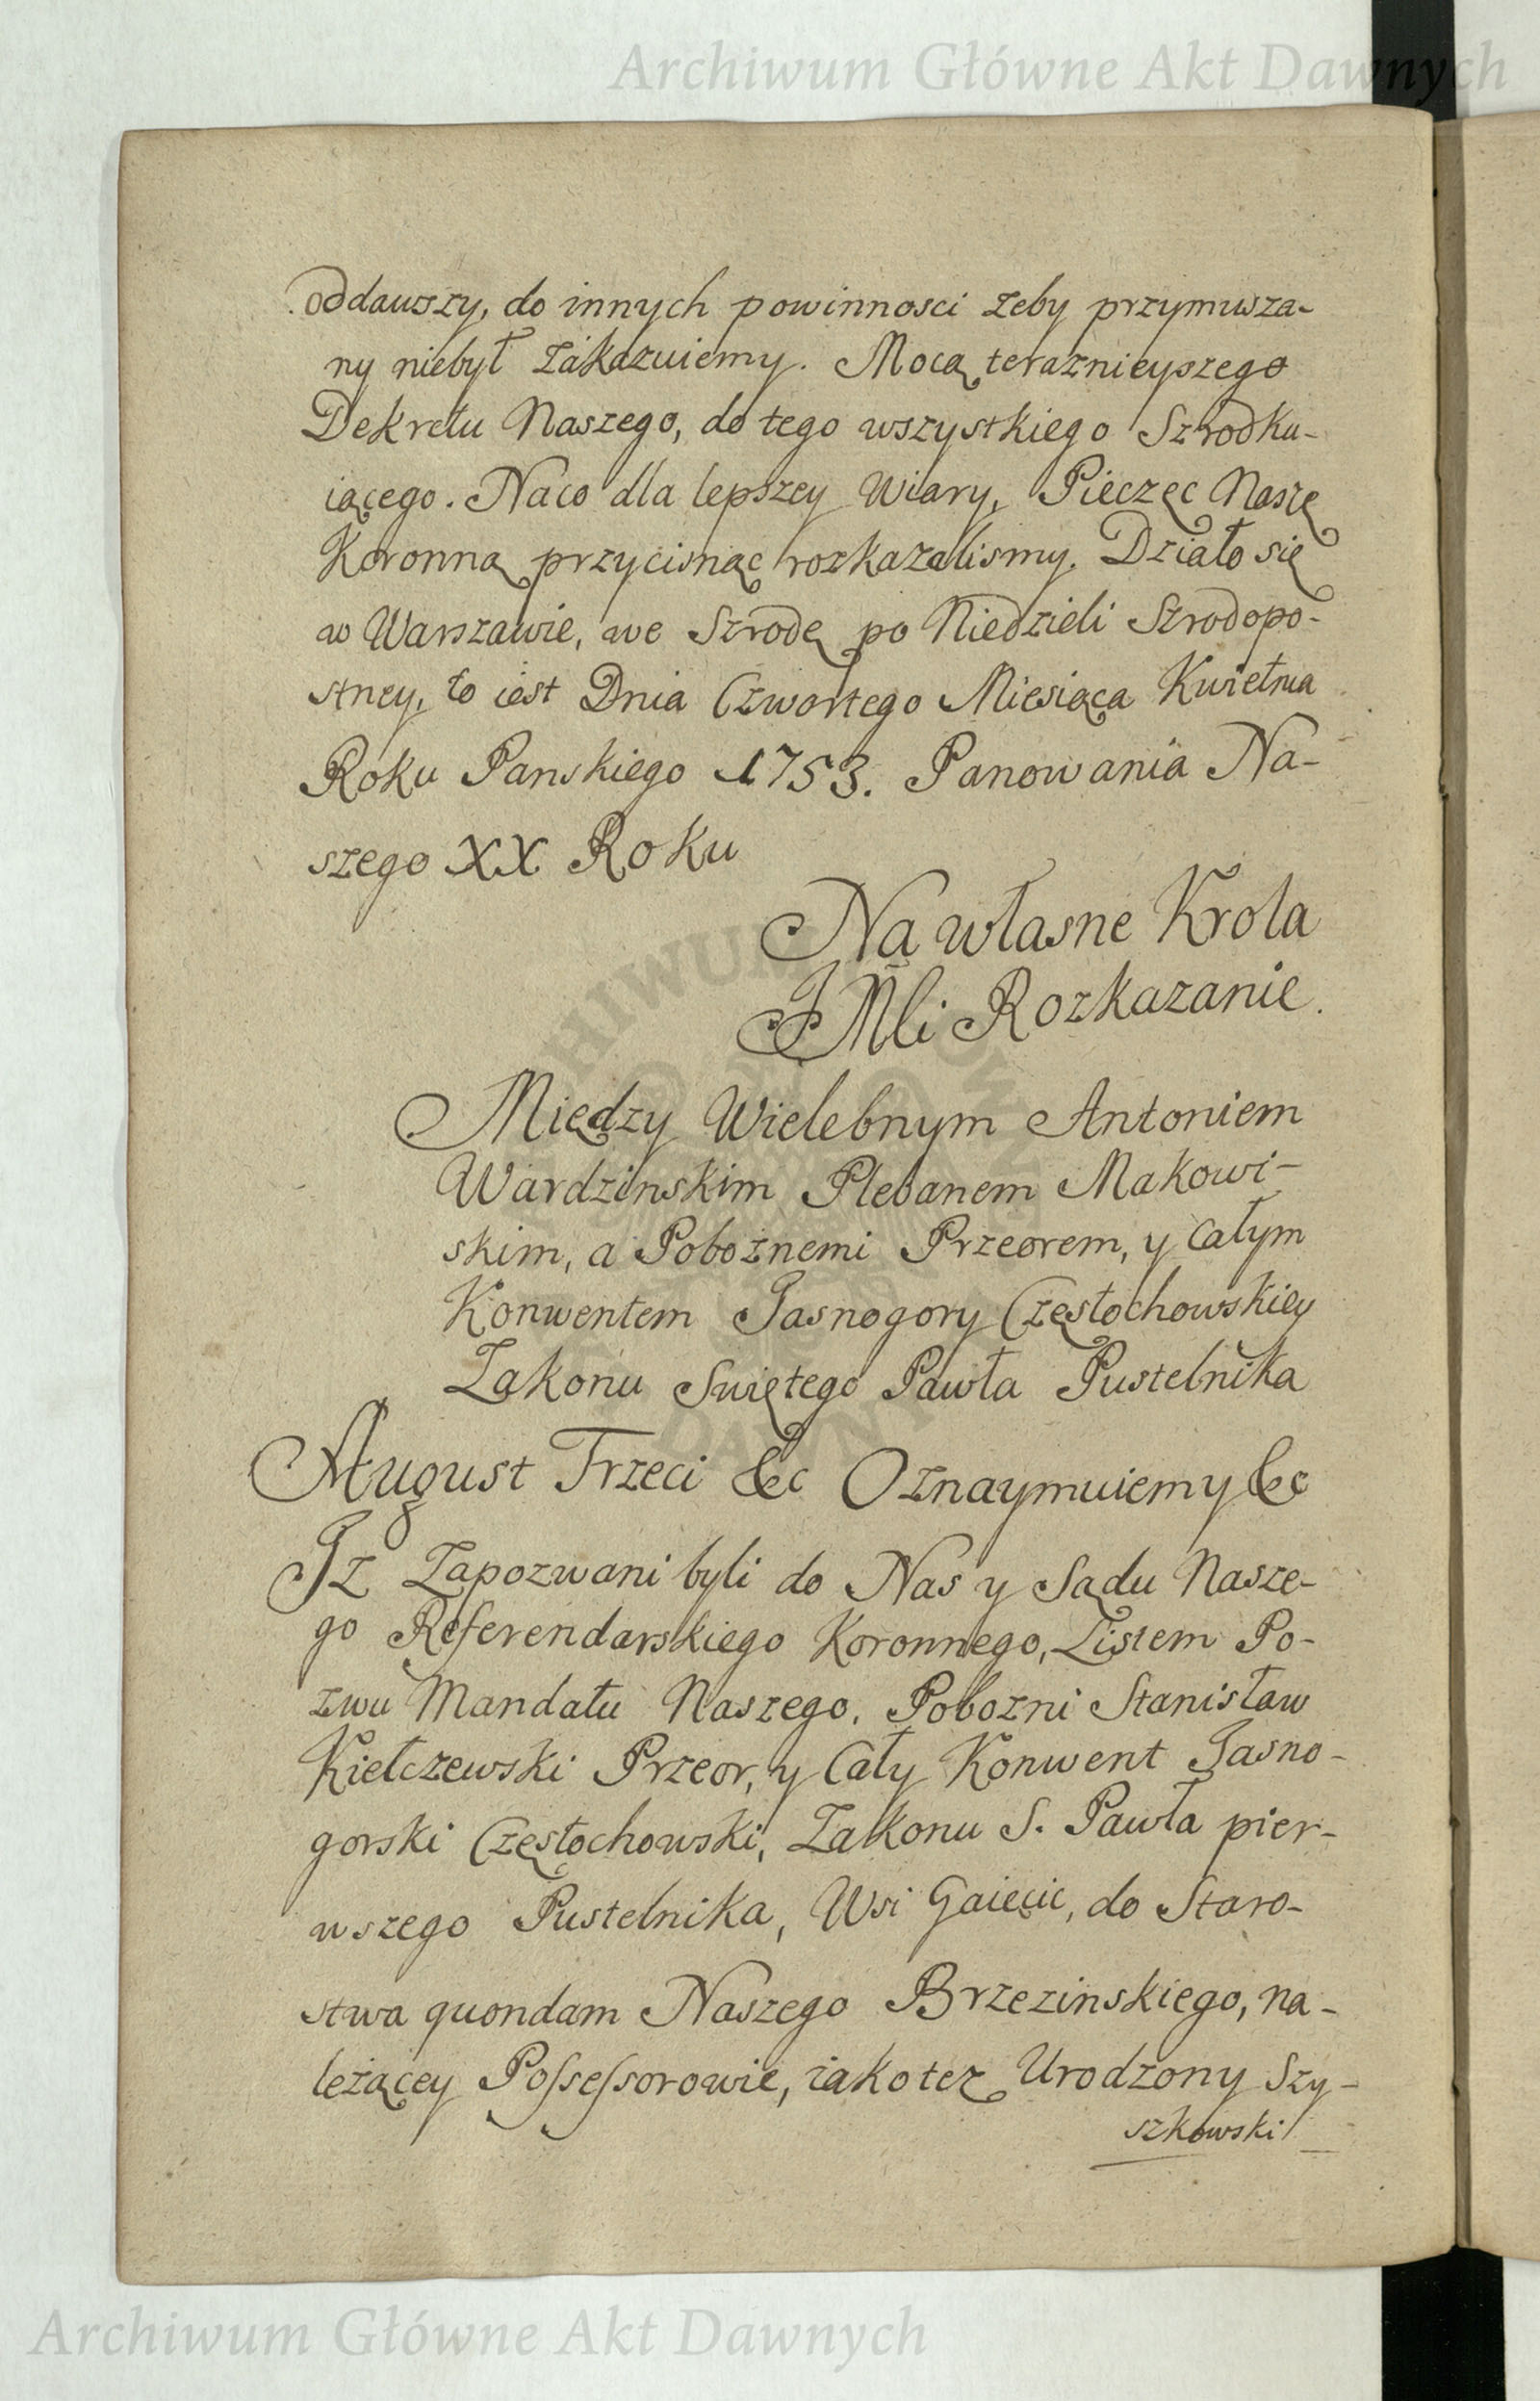 Archiwum Główne Akt Dawnych
oddawszy, do innych powinnosci zeby przymusza-
ny niebył zákazuiemy. Mocą teraznieyszego
Dekretu Naszego, do tego wszystkiego Szrodku-
iącego. Naco dla lepszey Wiary, Pieczęc Naszę
Koronną przycisnąc rozkazalismy. Działo się
w Warszawie, we Szrodę po Niedzieli Szrodopo-
stney, to iest Dnia Czwartego Miesiąca Kwietnia
Roku Panskiego 1753. Panowania Na-
szego XX Roku
Na własne Krola
JMCi Rozkazanie.
Między Wielebnym Antoniem
Wardzinskim Plebanem Makowi-
skim, a Pobożnemi Przeorem, y całym
Konwentem Jasnogory Częstochowskiey
Zakonu Swiętego Pawła Pustelnika
August Trzeci &c Oznaymuiemy &c
Iz Zapozwani byli do Nas y Sądu Nasze-
go Referendarskiego Koronnego, Listem Po-
zwu Mandatu Naszego, Pobozni Stanisław
Kiełczewski Przeor, y Cały Konwent Jasno-
gorski Częstochowski, Zakonu S. Pawła pier-
wszego Pustelnika, Wsi Gaięcic, do Staro-
stwa quondam Naszego Brzezinskiego, na-
leżącey Possessorowie, iakotez Urodzony Szy-
szkowski
Archiwum Główne Akt Dawnych